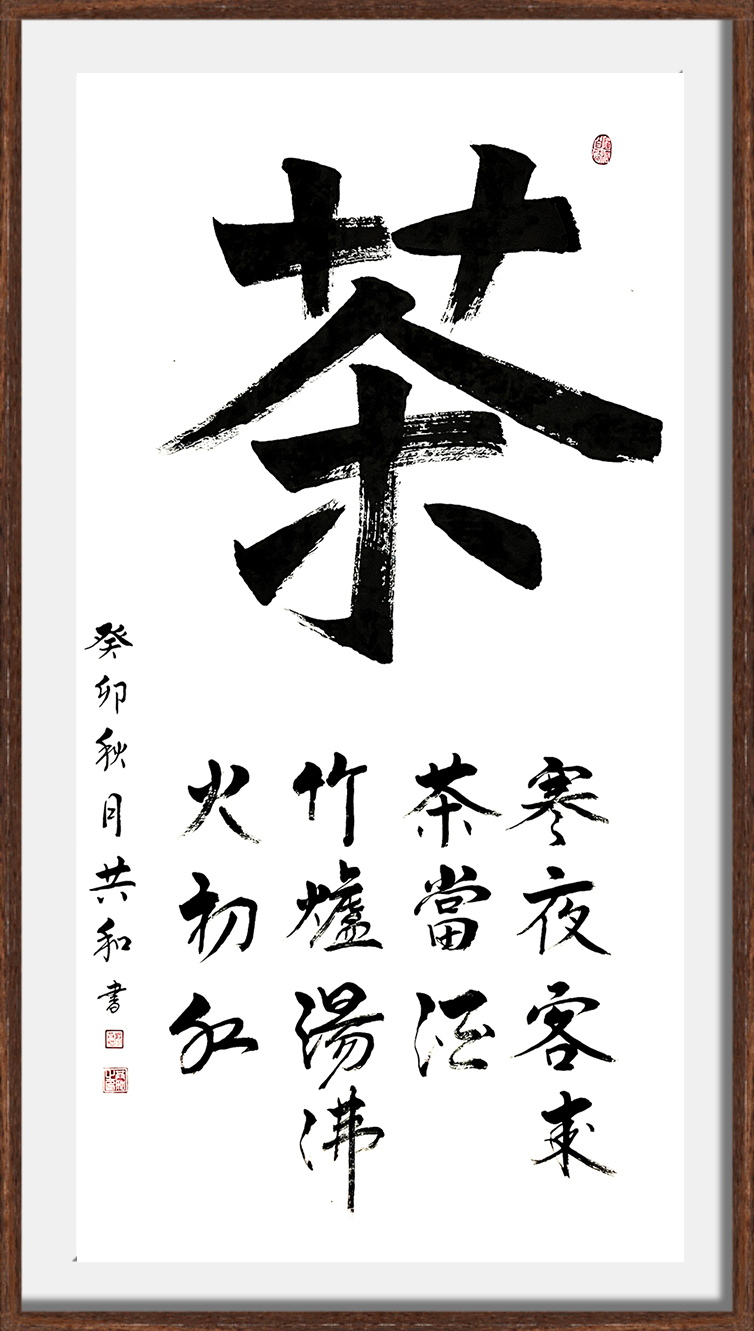 茶
寒夜客来
茶當酒
竹爐湯沸
火初红
癸卯秋月共和書